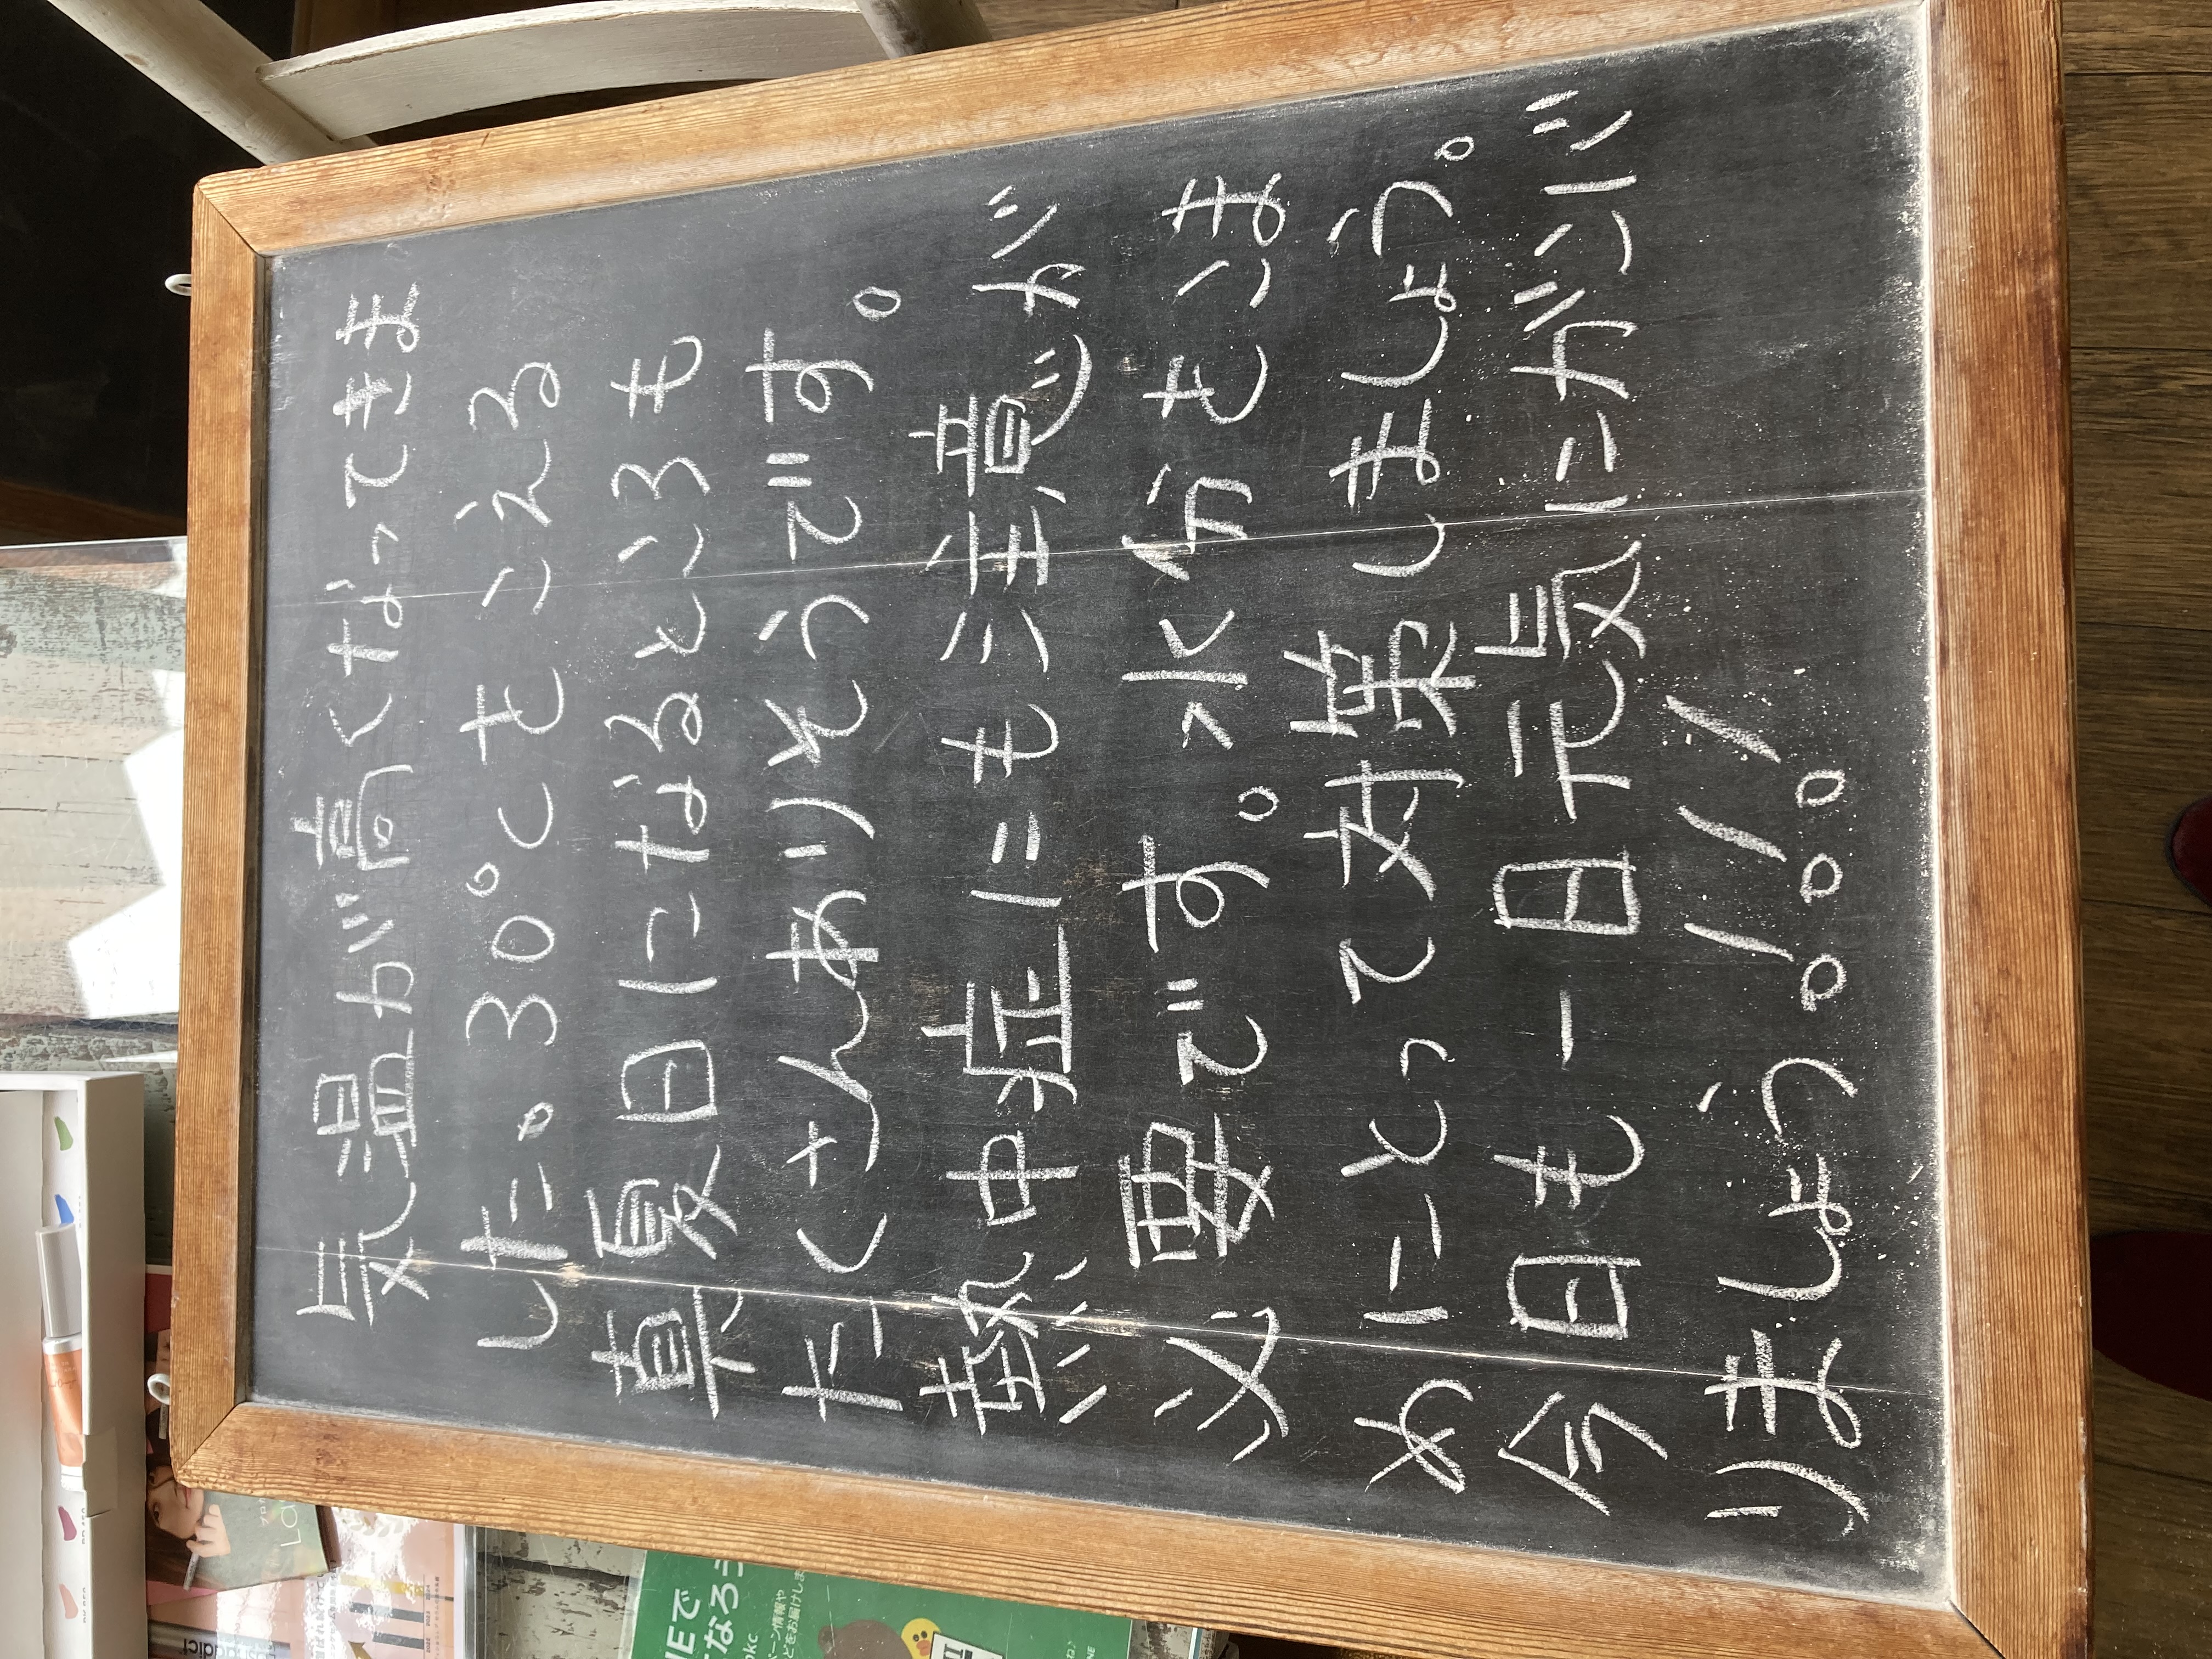 気温が高くなってきま
した。30℃をこえる
真夏日になるところも
たくさんありそうです。
熱中症にも注意が
必要です。水分をこま
めにとって対策しましょう。
今日も一日元気にがんば
りましょう!!!
NEで
なろう